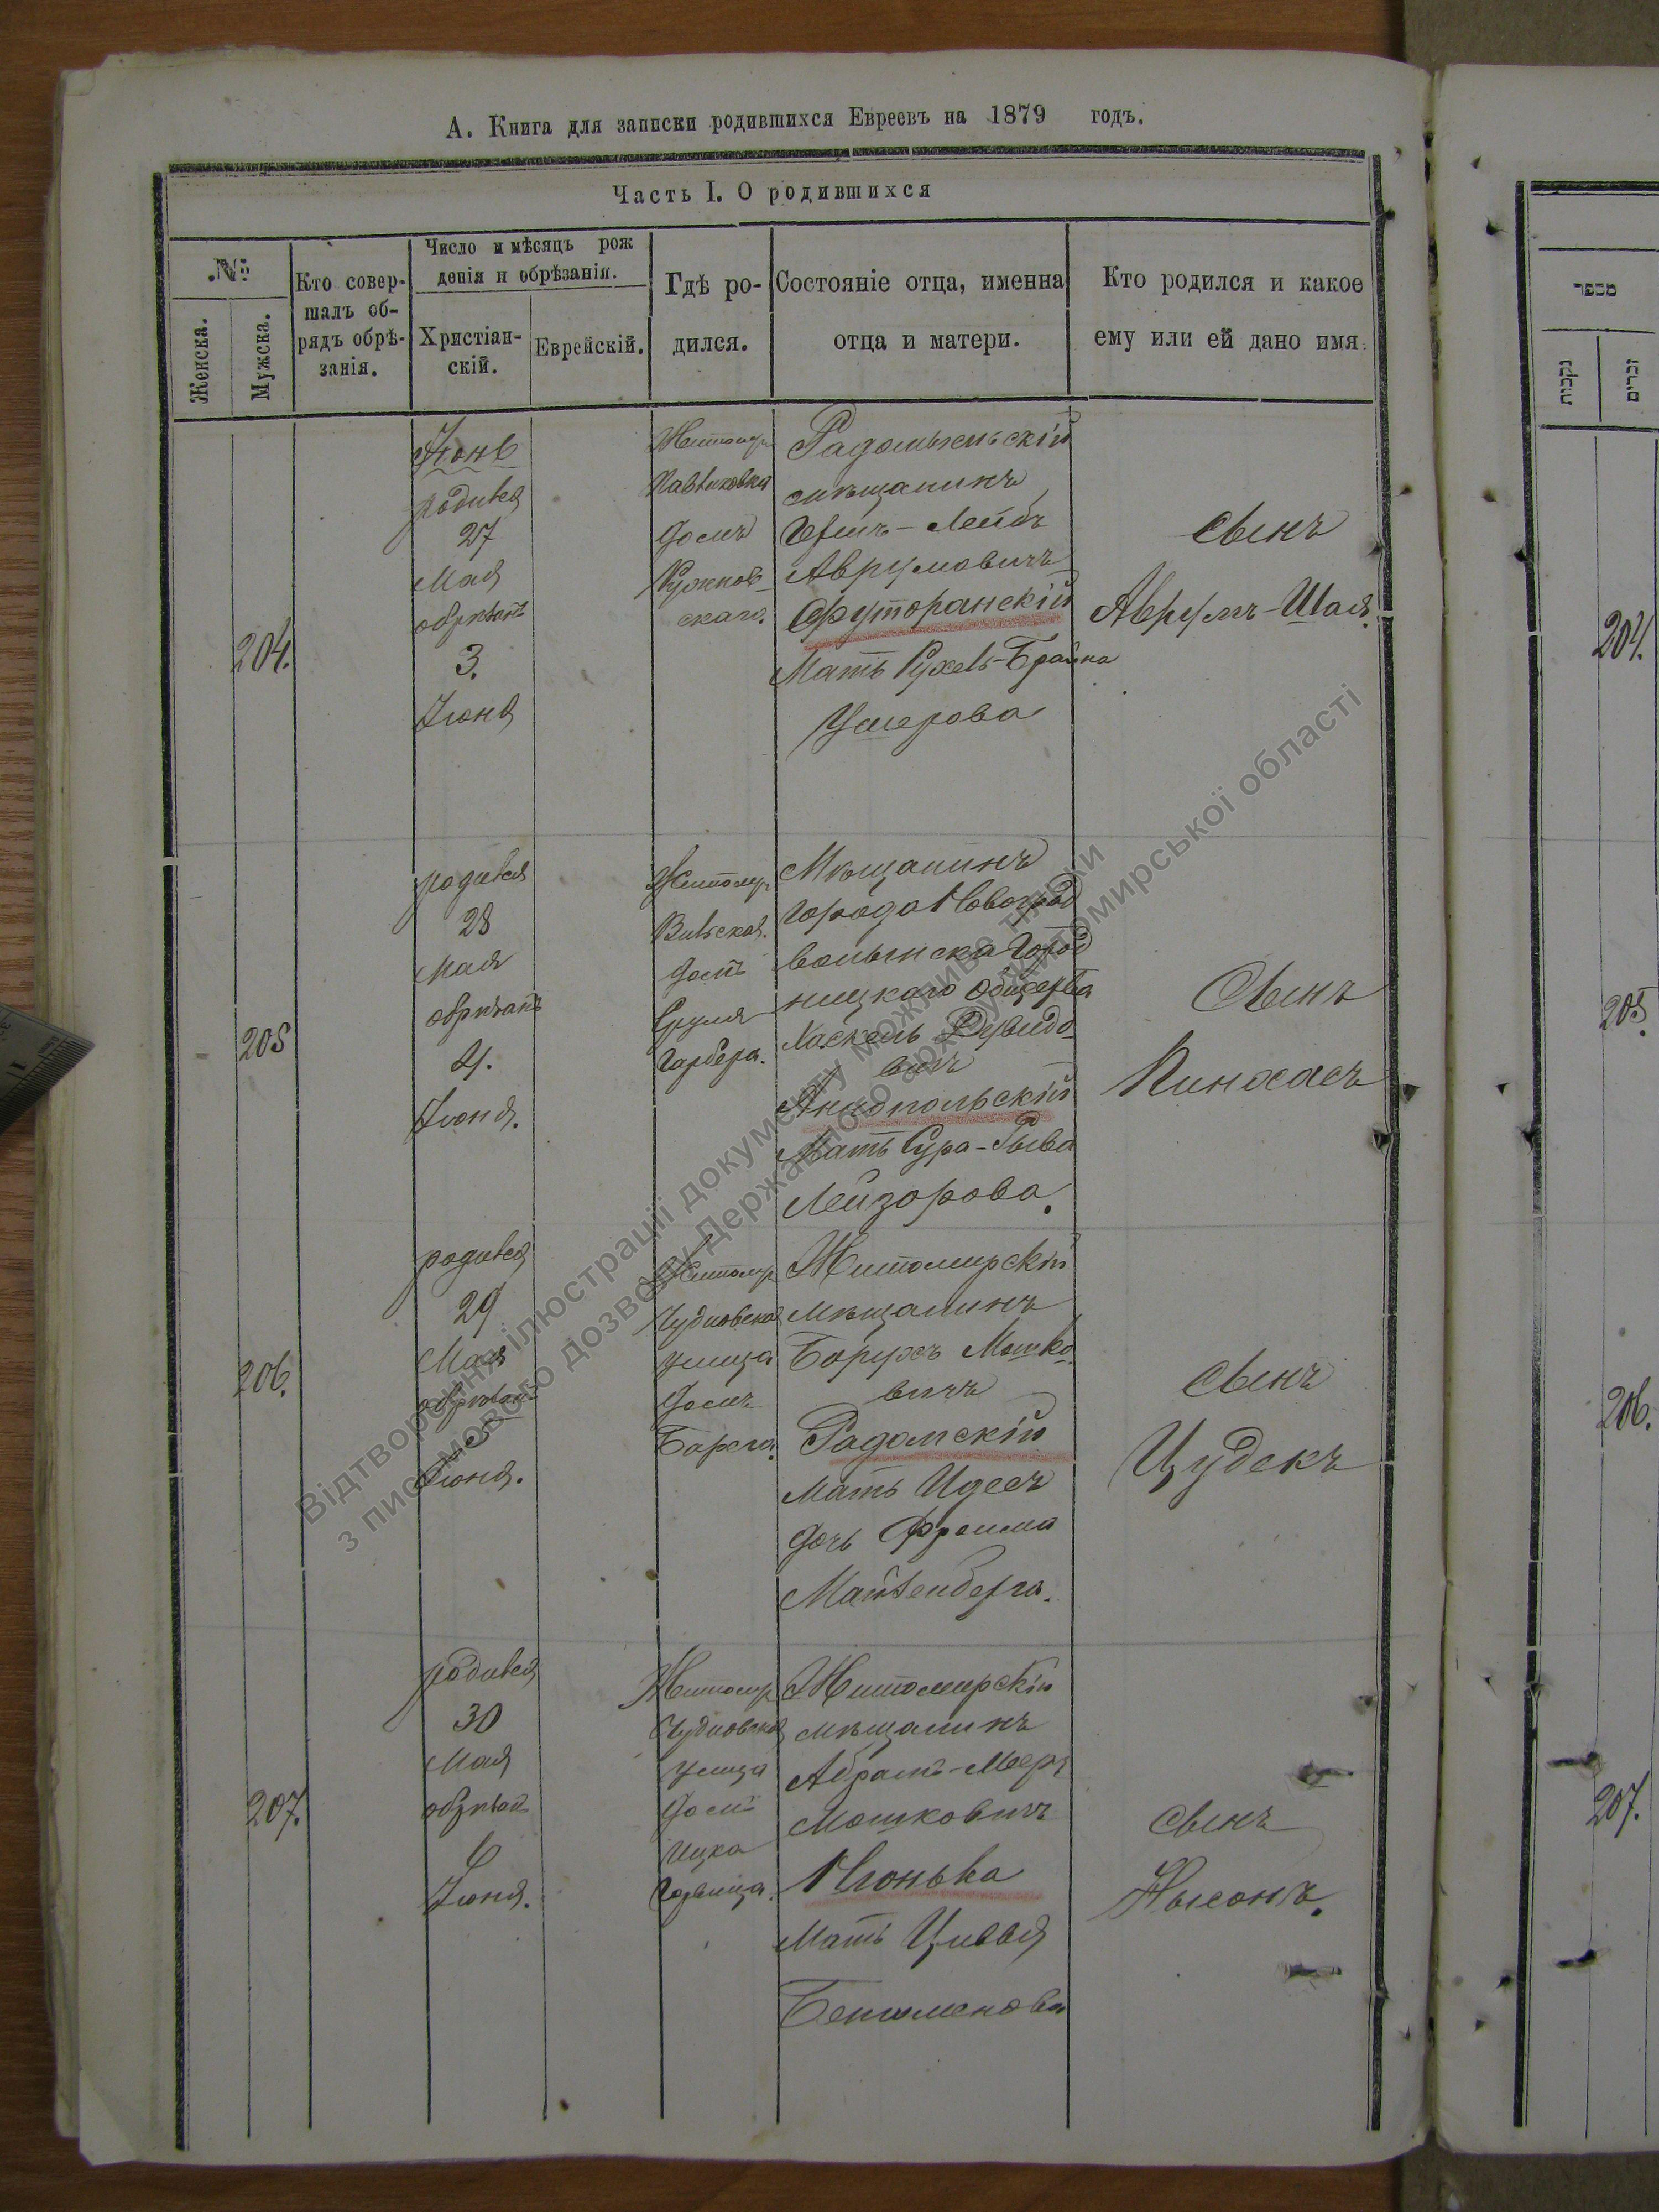 А. Книга для записки родившихся Евреевъ на 1879 годъ.
Часть I. О родившихся
№
Женска.
Мужска.
Кто совер-
шалъ об-
рядъ обрѣ-
занія.
Число и мѣсяцъ рож
денія и обрѣзанія.
Христіан-
скій.
Еврейскій.
Гдѣ ро-
дился.
Состояніе отца, именна
отца и матери.
Кто родился и какое
ему или ей дано имя.
204.
Іюнь
родився
27
Мая
обрѣзанъ
3.
Іюня
Житомир
домъ
скаго.
Радомысльскій
мѣщанинъ
Гершъ-Лейбъ
Аврумовичъ
Футоранскій
Мать Рухель-Брайна
Ушерова
сынъ
Аврумъ-Шая.
205
родився
28
мая
обрѣзанъ
4.
Іюня.
Житомир
Вильская.
домъ
Сруля
Гарбера.
Мѣщанинъ
города Новоград
волынска Город
ницкаго общества
Хаскель Дувидо
вичъ
Аннопольскій
Мать Сура-Рыва
Лейзорова.
Сынъ
Пинхасъ
206.
родився
29
Мая
обрѣзанъ
5
Іюня.
Житомир
Чудновская
улица
домъ
Житомирскій
мѣщанинъ
Борухъ Мошко
вичъ
Радомскій
Мать Идесъ
дочь Фроима
Майзенберга.
сынъ
Цудекъ
207.
родився
30
Мая
обрѣзанъ
6
Іюня.
Житомир
Чудновская
улица
домъ
Ицка
Гурвица.
Житомирскій
мѣщанинъ
Абрамъ-Мееръ
Мошковичъ
Мать Цивья
сынъ
Нысонъ.
מספר
נקבות
זכרים
204.
205.
206.
207.
Відтворення ілюстрації документу можливе тільки
з письмового дозволу Державного архіву Житомирської області